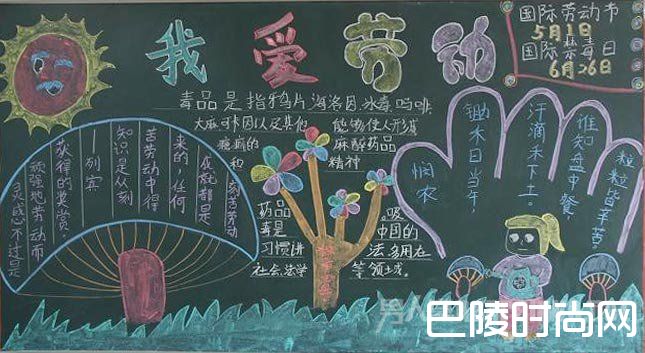 我爱劳动
国际劳动节
5月1日
国际禁毒日
6月26日
毒品是指鸦片,海洛因,冰毒吗啡
大麻可卡因以及其他 能够使人形成
瘾癖的 麻醉药品
和 精神
药品 。吸
毒是 中国的
习惯讲 法,多用在
社会,法学 等领土或。
灵感不过是
顽强地劳动而
获得的奖赏
—列宾
知识是从刻
苦劳动中得
来的,任何
成就都是
刻苦劳动
悯农
锄木日当午,
汗滴禾下土。
谁知盘中餐,
粒粒皆辛苦。
巴陵时尚网